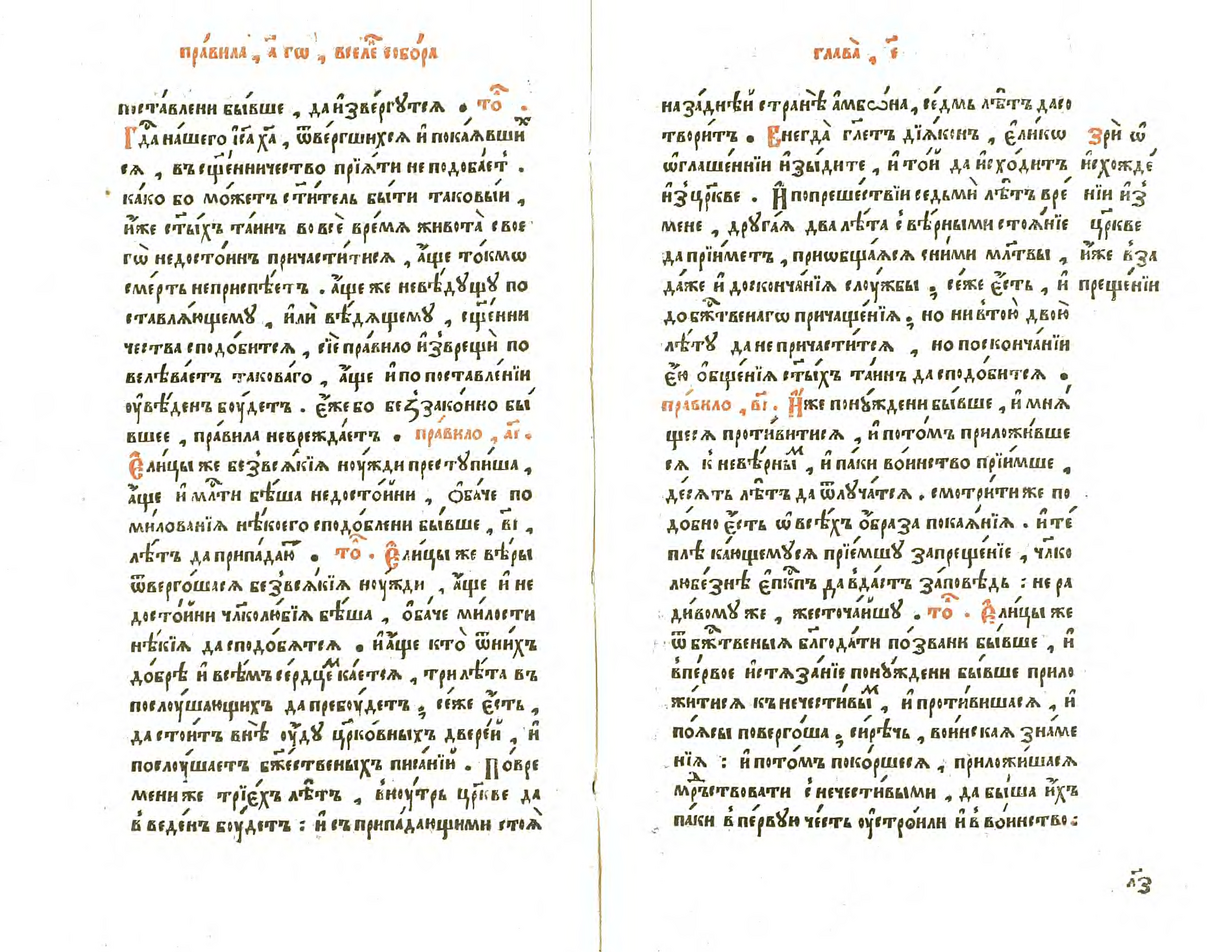 пра́вила , а҃ гѡ , вселе́н собо́ра
поставлени бы́вше , да и҆зве́ргꙋтсѧ . то́л .
Гд҇а на́шего і҆са ха҇ , ѿве́ргшихсѧ и҆ пока́ѧвши
сѧ , въ сщ҃е́нничество прїѧ́ти не подоба́ет .
ка́ко бо мо́жетъ ст҃и́тель бы́ти таковы́и ,
и҆́же ст҃ы́хъ та́инъ во всѐ вре́мѧ живота̀ свое
гѡ̀ недосто́инъ причасти́тисѧ , а҆́ще то́кмѡ
сме́рть не приспѣ́етъ . а҆́ще же невѣ́дꙋщꙋ по
ставлѧ́ющемꙋ , и҆лѝ вѣ́дѧщемꙋ , сщ҃е́нни
чества сподо́битсѧ , сїѐ пра́вило и҆зврещѝ по
велѣва́етъ таково́го , а҆́ще и҆ по поставле́нїи
оу҆вѣ́денъ боу́детъ . є҆́же бо беззако́нно бы́
вшее , пра́вила не врежда́етъ . пра́вило , а҃і .
Є҆ли́цы же безъ всѧ́кїѧ ноу́жди престꙋпи́ша ,
а҆́ще и҆ мл҇ти бѣ́ша недосто́йни , ѻ҆ба́че по
милова́нїѧ нѣ́коего сподо́блени бы́вше , в҃і ,
лѣ́тъ да припа́даю . то́л . Є҆ли́цы же вѣ́ры
ѿверго́шасѧ безъ всѧ́кїѧ ноу́жди , а҆́ще и҆ не
досто́йни чл҃колю́бїѧ бѣ́ша , ѻ҆ба́че ми́лости
нѣ́кїѧ да сподо́бѧтсѧ . и҆ а҆́ще кто̀ ѿ ни́хъ
до́брѣ и҆ всѣ́мъ се́рдцем ка́етсѧ , три лѣ́та въ
послоу́шающихъ да пребоу́детъ ; се́же є҆́сть ,
да стои́тъ внѣ̀ оу҆́дꙋ цр҃ко́вныхъ двере́й , и҆
послоу́шаетъ бж҃е́ственыхъ писа́нїй . По вре
мени же трїе́хъ лѣ́тъ , внꙋ́трь цр҃кве да
в веде́нъ боу́детъ : и҆ съ припа́дающими стоѧ
глава̀ , е҃
на за́днѣй странѣ̀ а҆мбѡ́на , се́дмь лѣ́тъ да со
твори́тъ . Є҆негда̀ гл҃етъ дїѧ́конъ , є҆ли́кѡ
ѡ҆глаше́ннїи и҆зы́дите , и҆ то́й да и҆схо́дитъ
и҆з цр҃кве . И҆ по преше́ствїи седьмѝ лѣ́тъ вре
мене , дрꙋга́ѧ два лѣ́та с вѣ́рными стоѧ́нїе
да прїи́метъ , приѡбща́ѧсѧ с ни́ми мл҃твы ,
да́же и҆ до сконча́нїѧ слоу́жбы ; се́же є҆́сть , и҆
до бж҃твенагѡ причаще́нїѧ ; но ни в то́ю двою̀
лѣ́тꙋ да не причасти́тсѧ , но по сконча́нїи
є҆ю̀ ѻ҆бще́нїѧ ст҃ы́хъ та́инъ да сподо́битсѧ .
пра́вило , в҃і . И҆́же понꙋ́ждени бы́вше , и҆ мнѧ́
щесѧ проти́витисѧ , и҆ пото́мъ приложи́вше
сѧ к невѣ́рным , и҆ па́ки во́инство прїи́мше ,
де́сѧть лѣ́тъ да ѿлꙋча́тсѧ . смотри́ти же по
до́бно є҆́сть ѡ҆ всѣ́хъ ѻ҆́браза покаѧ́нїѧ . и҆ те́
плѣ ка́ющемꙋсѧ прїе́мшꙋ запреще́нїе , чл҃ко
любе́знѣ є҆пс҃кпъ да вда́стъ за́повѣдь : не ра
ди́вомꙋ же , жесточа́йшꙋ . то́л . Є҆ли́цы же
ѿ бж҃твеныѧ бл҃года́ти по́звани бы́вше , и҆
впе́рвое и҆стѧза́нїе понꙋ́ждени бы́вше прило
жи́тисѧ къ нечести́вым , и҆ проти́вишасѧ , и҆
по́ѧсы поверго́ша ; си́рѣчь , во́инскаѧ зна́ме
нїѧ : и҆ пото́мъ поко́ршесѧ , приложи́шасѧ
мꙋ́дръствовати с нечести́выми , да бы́ша и҆́хъ
па́ки в пе́рвꙋю че́сть оу҆стро́или и҆ в во́инство :
Зрѝ ѡ҆
и҆схожде́
нїи и҆з
цр҃кве
и҆́же в за
преще́нїи
л҃з